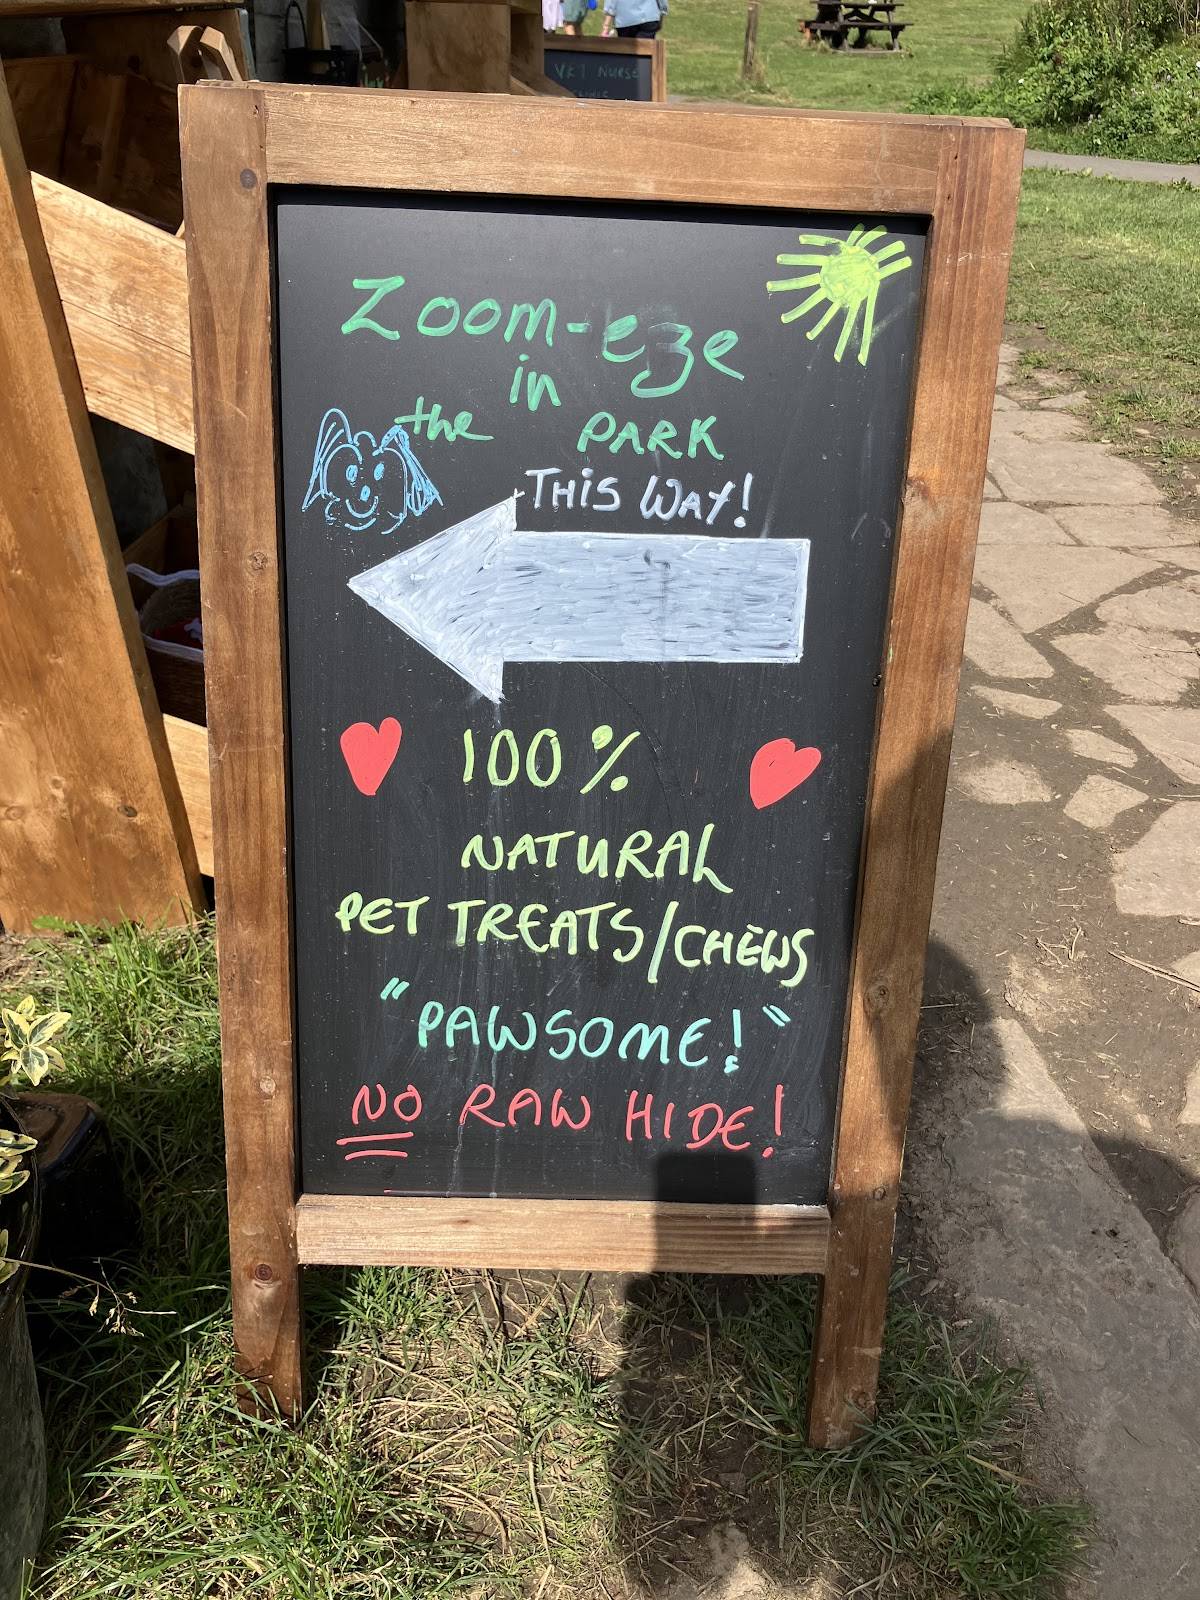 VK1 NURSE
CLINIC
Zoom-eze
in
the PARK
THIS WAY!
100%
NATURAL
PET TREATS/CHEWS
"PAWSOME!"
NO RAW HIDE!